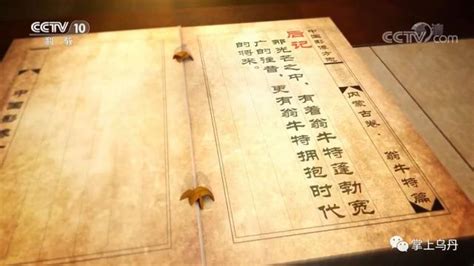 CCTV 10
科教
CCTV.com
中国影像方志
内蒙古卷 翁牛特篇
后记
那光芒之中,有着翁牛特蓬勃宽
广的往昔,更有翁牛特拥抱时代
的将来。
中国影像
掌上乌丹